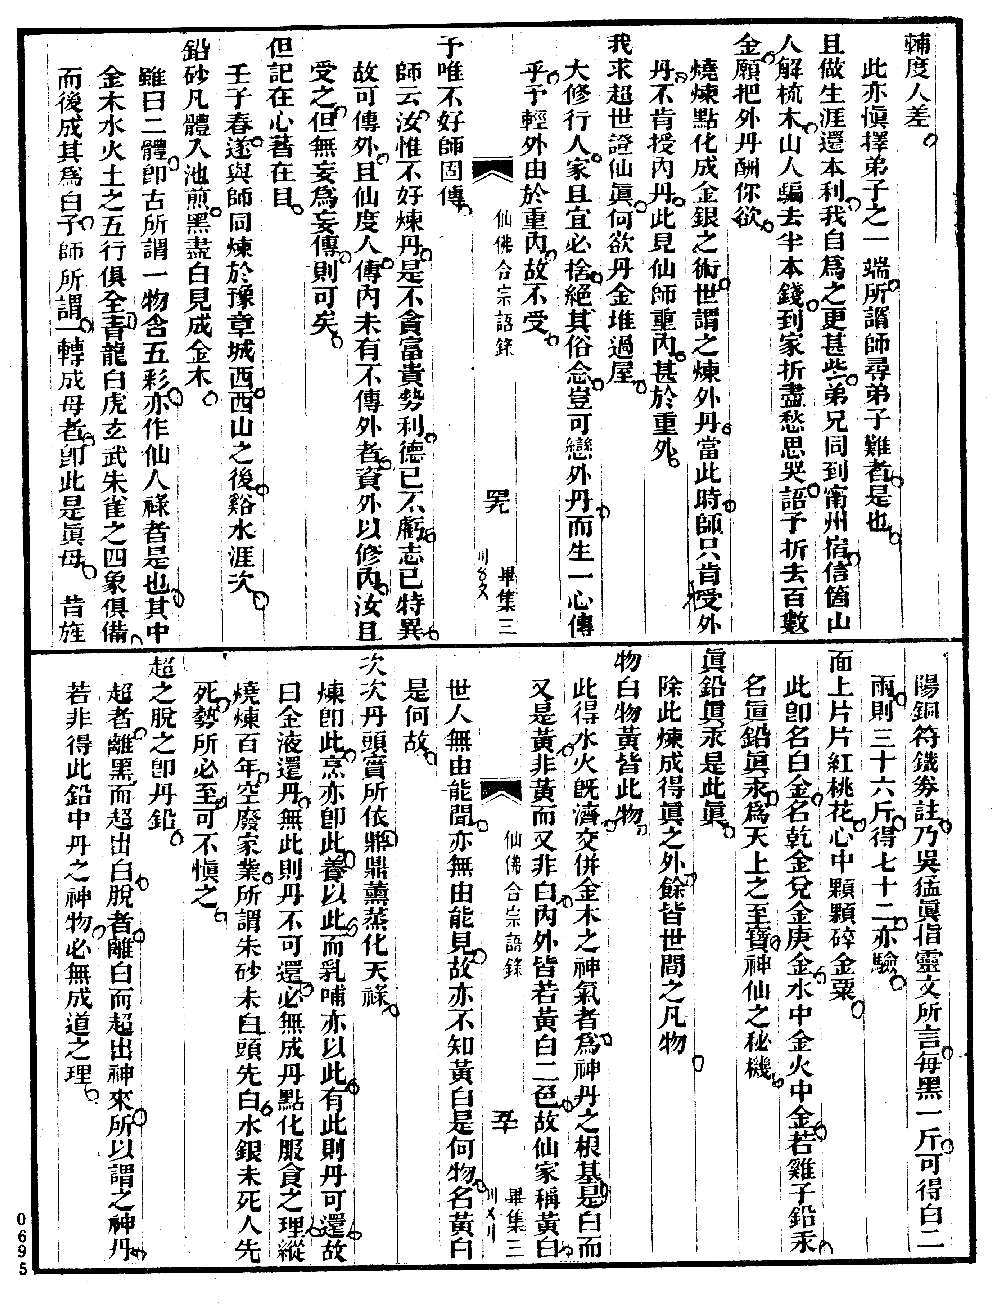 輔度人差
此亦愼擇弟子之一端所謂師尋弟子難者是也
且做生涯還本利我自爲之更甚些弟兄同到甯州宿信箇山
人解梳木山人騙去半本錢到家折盡愁思哭語予折去百數
金願把外丹酬你欲
燒煉點化成金銀之術世謂之煉外丹當此時師只肯受外
丹不肯授內丹此見仙師重內甚於重外
我求超世證仙眞何欲丹金堆過屋
大修行人家且宜必捨絕其俗念豈可戀外丹而生一心傳
乎予輕外由於重內故不受
仙佛合宗語錄
畢集三
予唯不好師固傳
師云汝惟不好煉丹是不貪富貴勢利德已不虧志已特異
故可傳外且仙度人傳內未有不傳外者資外以修內汝且
受之但無妄爲妄傳則可矣
但記在心蓍在目
壬子春遂與師同煉於豫章城西西山之後谿水涯次
鉛砂凡體入池煎黑盡白見成金木
雖曰二體卽古所謂一物含五彩亦作仙人祿者是也其中
金木水火土之五行俱全青龍白虎玄武朱雀之四象俱備
而後成其爲白子師所謂一轉成母者卽此是眞母 昔旌
陽銅符鐵券註乃吳猛眞信靈文所言每黑一斤可得白二
兩則三十六斤得七十二亦驗
面上片片紅桃花心中顆顆碎金粟
此卽名白金名乾金兌金庚金水中金火中金若雞子鉛汞
名眞鉛眞汞爲天上之至寶神仙之秘機
眞鉛眞汞是此眞
除此煉成得眞之外餘皆世間之凡物
物白物黃皆此物
此得水火旣濟交併金木之神氣者爲神丹之根基是白而
又是黃非黃而又非白內外皆若黃白二色故仙家稱黃白
仙佛合宗語錄
畢集三
世人無由能聞亦無由能見故亦不知黃白是何物名黃白
是何故
次次丹頭實所依鼎鼎薰蒸化天祿
煉卽此烹亦卽此養以此而乳哺亦以此有此則丹可還故
曰金液還丹無此則丹不可還必無成丹點化服食之理縱
燒煉百年空廢家業所謂朱砂未白頭先白水銀未死人先
死勢所必至可不愼之
超之脫之卽丹鉛
超者離黑而超出白脫者離白而超出神來所以謂之神丹
若非得此鉛中丹之神物必無成道之理
0695